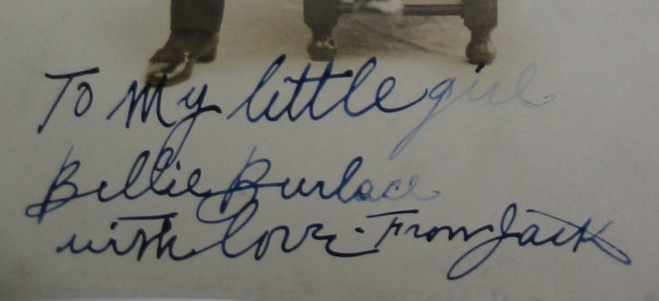 To My little girl
Billie Burlace
with love - From Jack